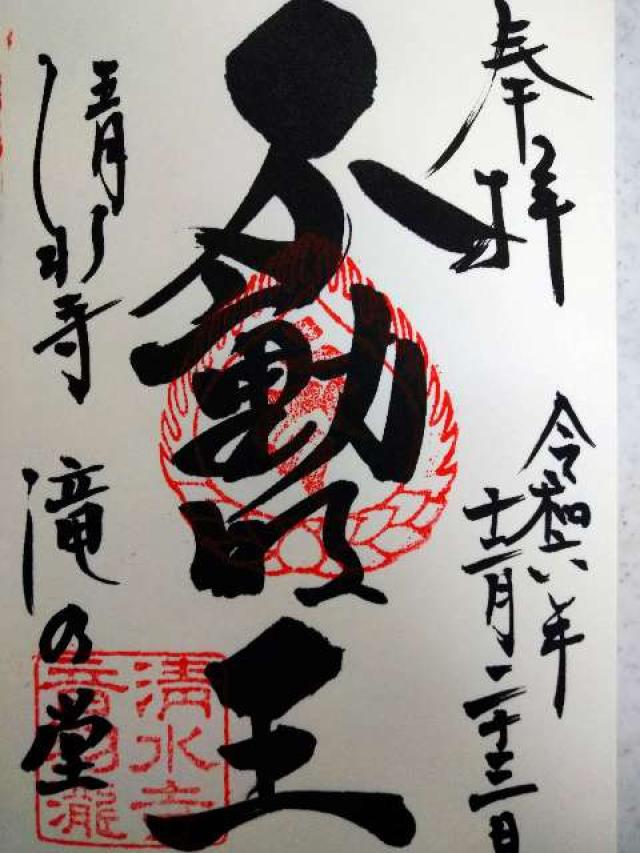 奉拝
令和六年
十二月二十三日
不動明王
清水寺
滝の堂
清水寺
音羽瀧